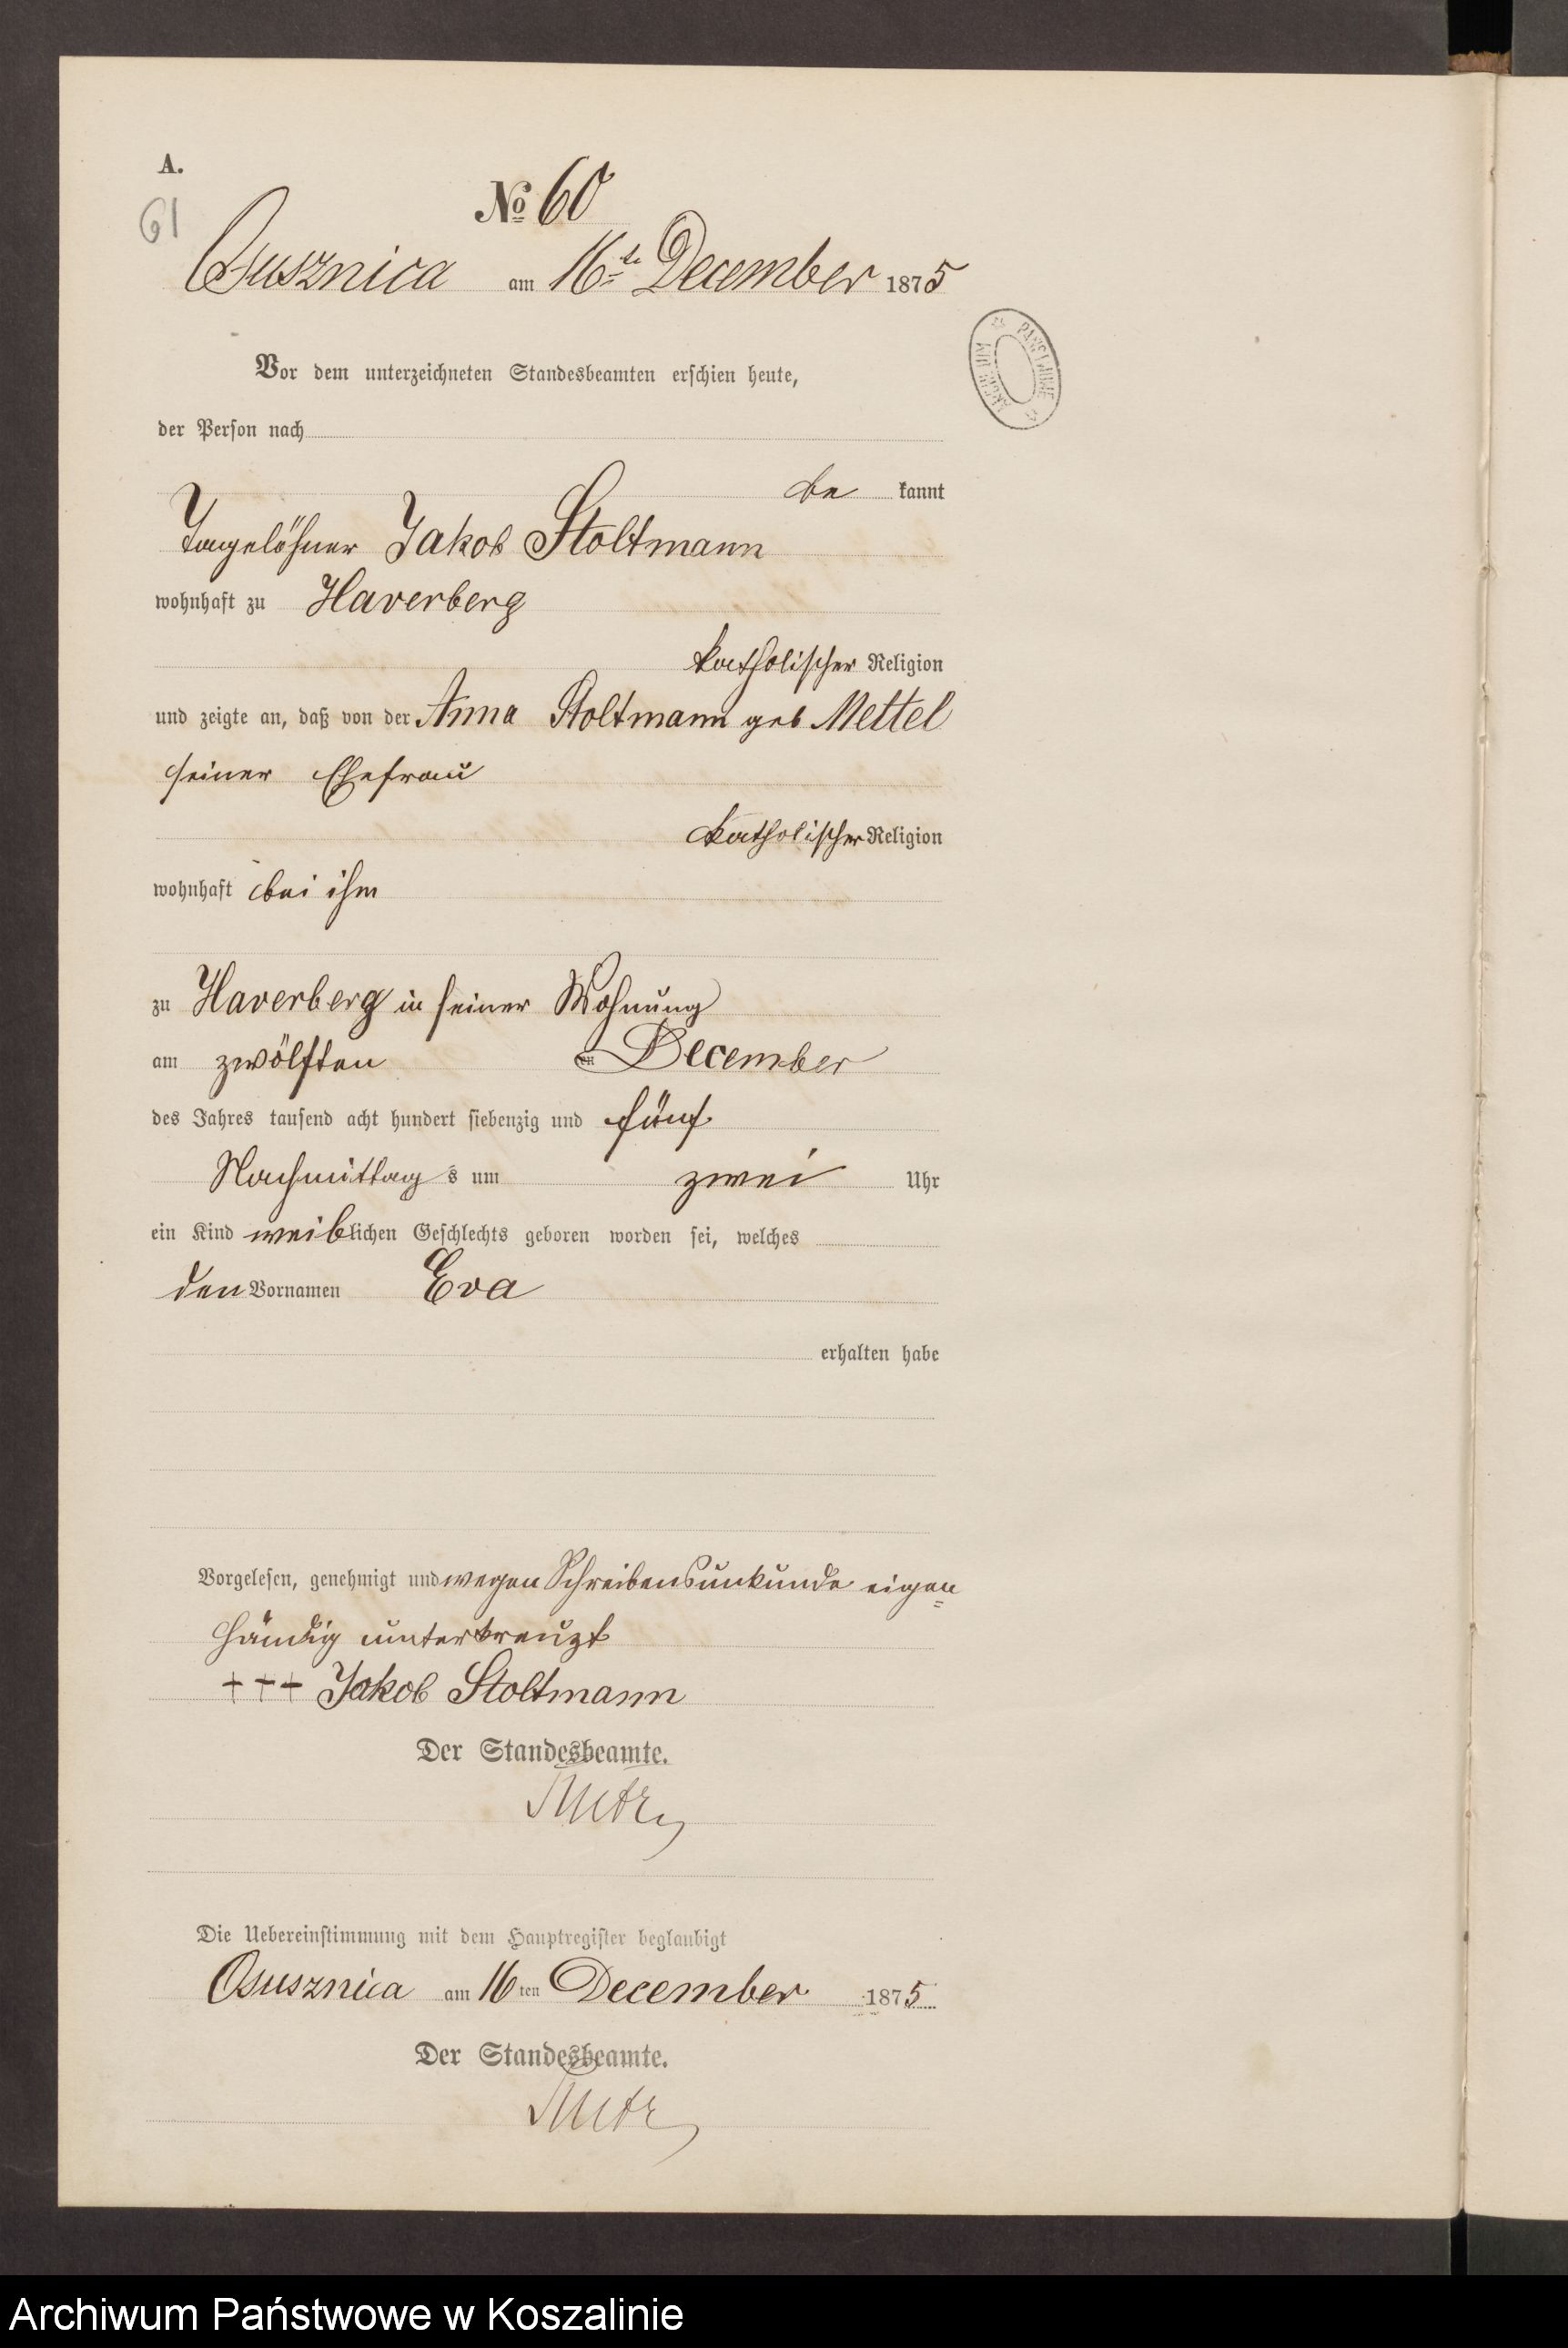 A.
61
№ 60
Osusznica am 16te December 1875
PAŃSTWOWE ARCHIWUM
Vor dem unterzeichneten Standesbeamten erschien heute,
der Person nach
be kannt
Tagelöhner Jakob Stoltmann
wohnhaft zu Haverberg
katholischer Religion
und zeigte an, daß von der Anna Stoltmann geb Mettel
seiner Ehefrau
katholischer Religion
wohnhaft bei ihm
zu Haverberg in seiner Wohnung
am zwölften ten December
des Jahres tausend acht hundert siebenzig und fünf
Nachmittag s um zwei Uhr
ein Kind weiblichen Geschlechts geboren worden sei, welches
den Vornamen Eva
erhalten habe
Vorgelesen, genehmigt und wegen Schreibensunkunde eigen=
händig unterkreuzt
+++ Jakob Stoltmann
Der Standesbeamte.
Die Uebereinstimmung mit dem Hauptregister beglaubigt
Osusznica am 16ten December 1875
Der Standesbeamte.
Archiwum Państwowe w Koszalinie